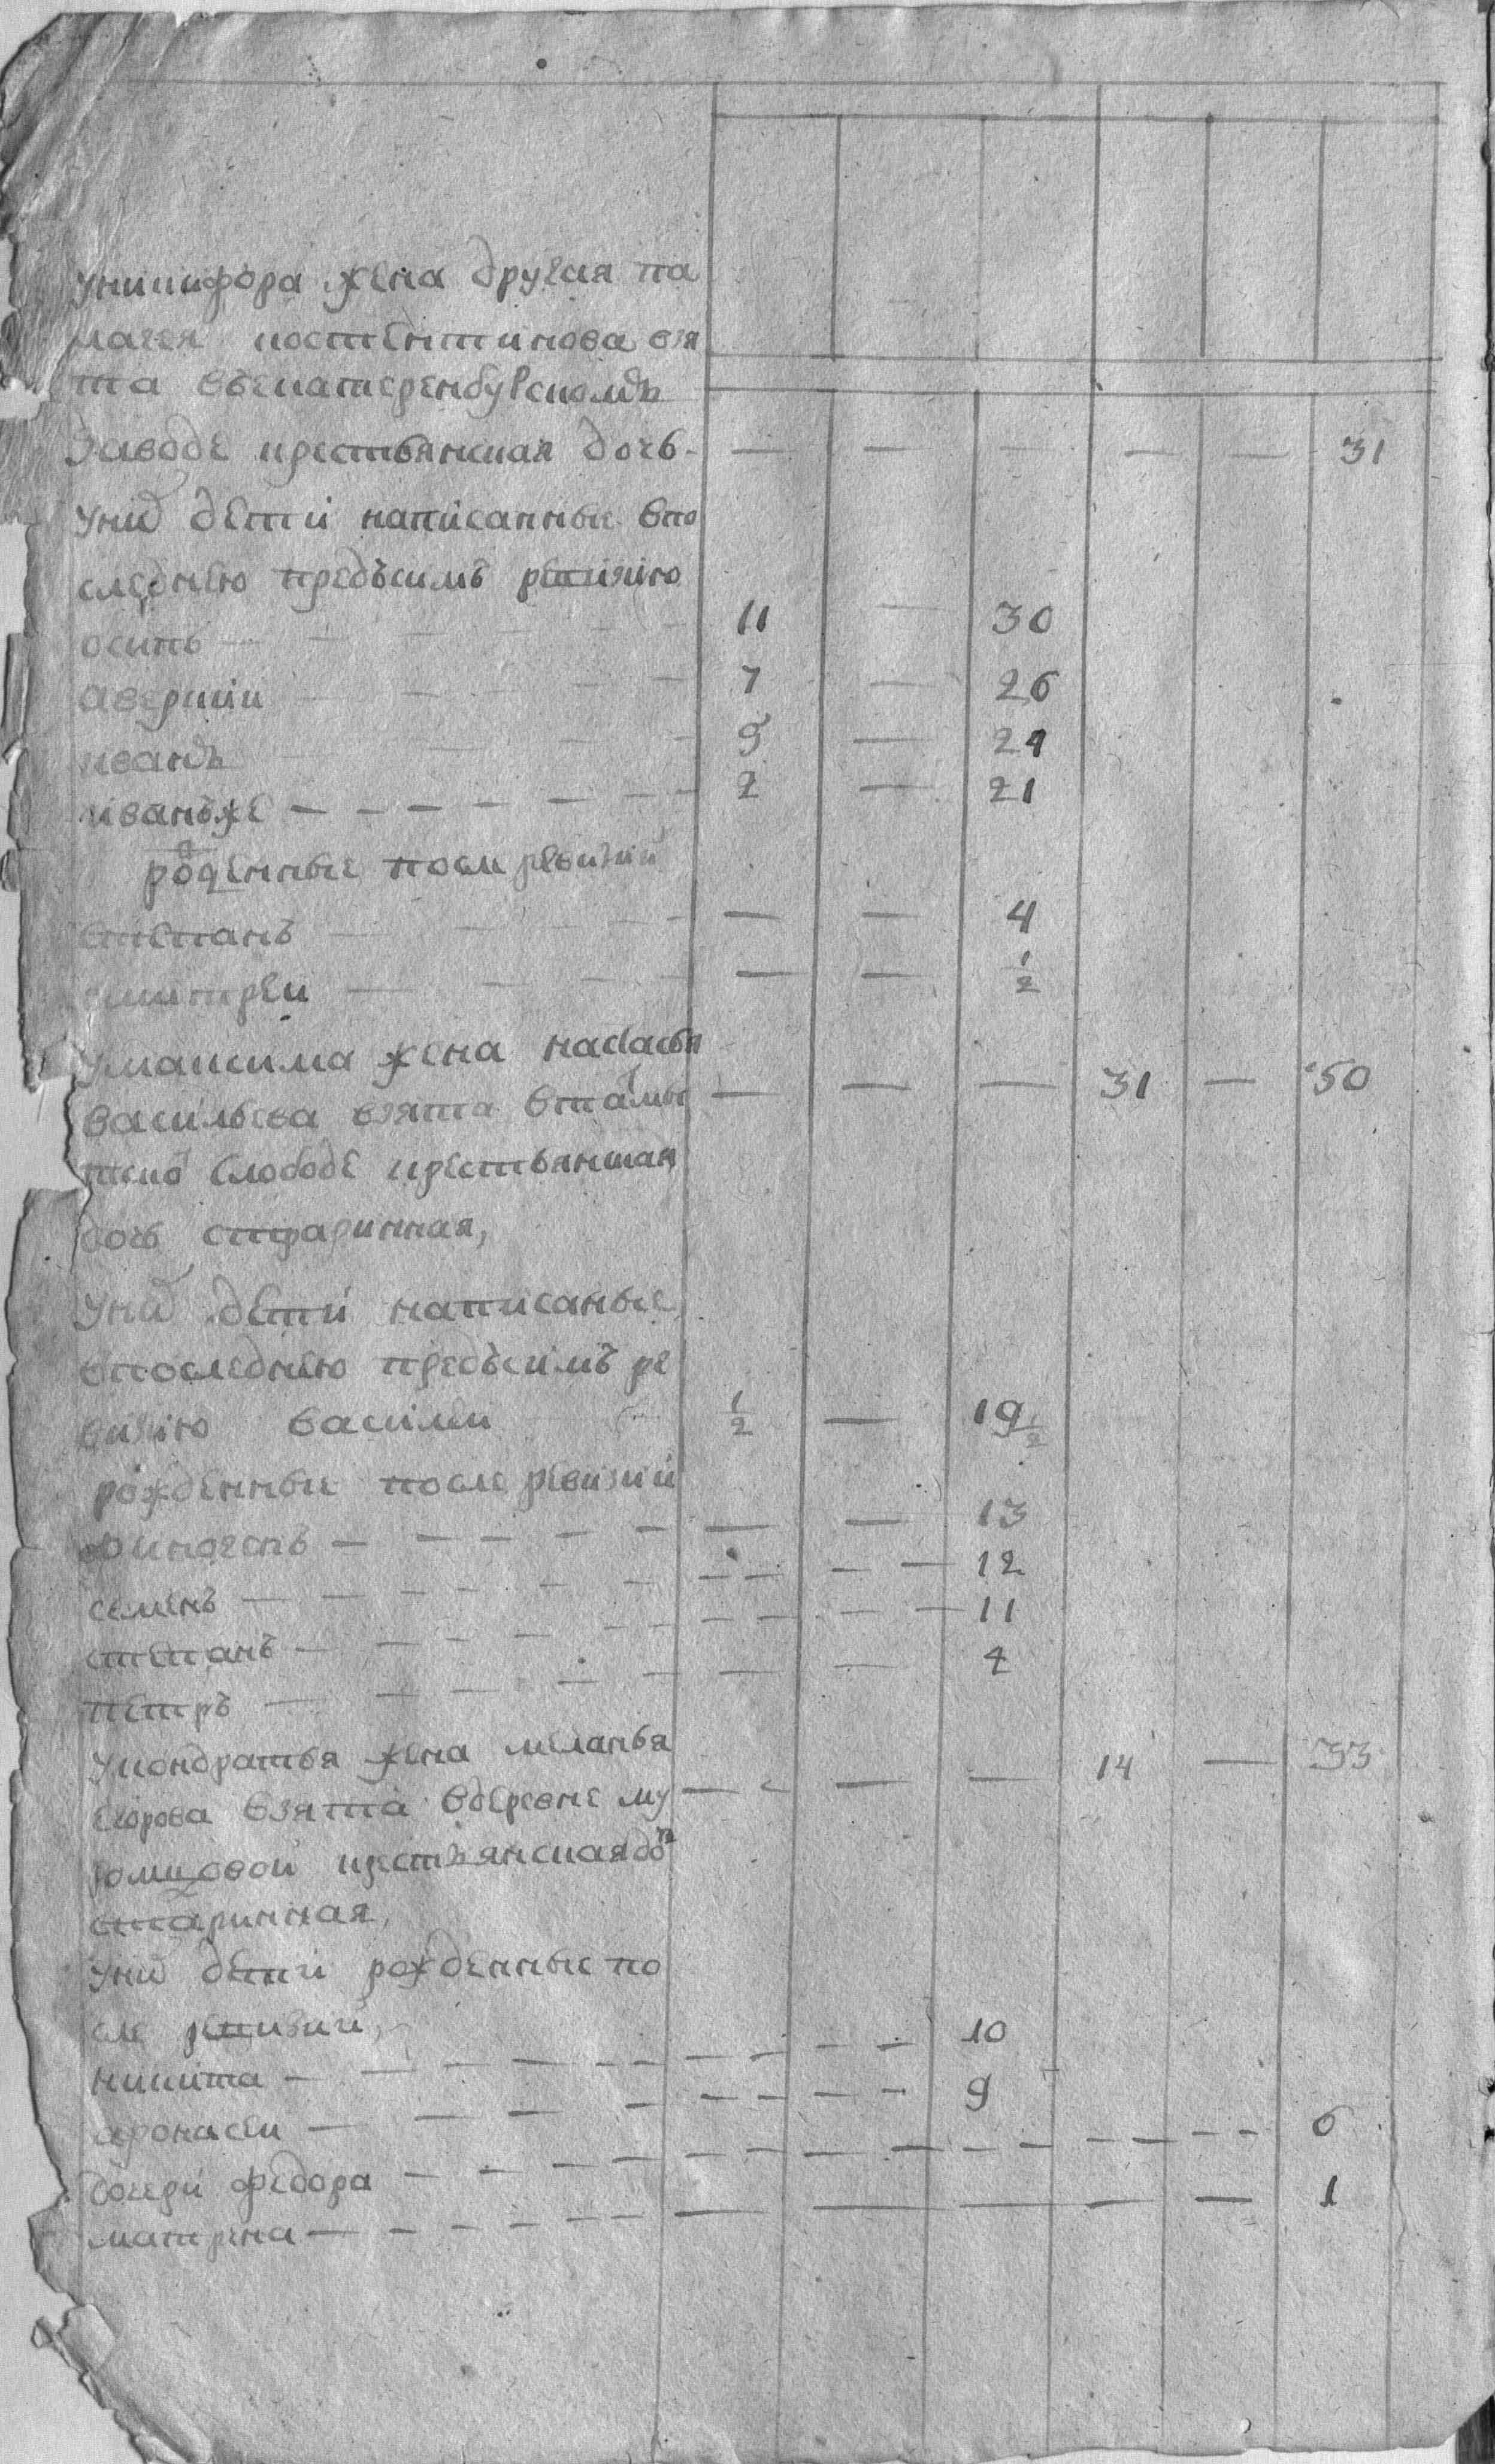 Уникифора жена другая па
лагея костентинова взя
та въекатеренбурскомъ
Заводе крестьянская дочь — — — — — 31
Уних дети написанные впо
следнею предъсимъ ревизию
осипъ — 11 — 30
аверкии 7 — 26
иванъ 9 — 24
иванъже — 2 — 21
роженные после ревизии
степанъ — — — 4
дмитреи — — — 1/2
Умаксима жена настасья
васильева взята вталы — — — 31 — 50
цкой Слободе крестьянская
дочь старинная,
Уних дети написаные
впоследнею предъсимъ ре
визию василеи 1/2 — 19 1/2
рожденные после ревизии
финогенъ — — — 13
семенъ — — — 12
степанъ — — — 11
петръ — — — 4
Укондратья жена меланья
егорова взята вдеревне му — — — 14 — 33
крестьянская до
старинная,
Уних дети рожденные по
сле ревизии,
никита — — — 10
афонасеи — — — 9
дочери федора — — — — — 6
матрена — — — — — — 1